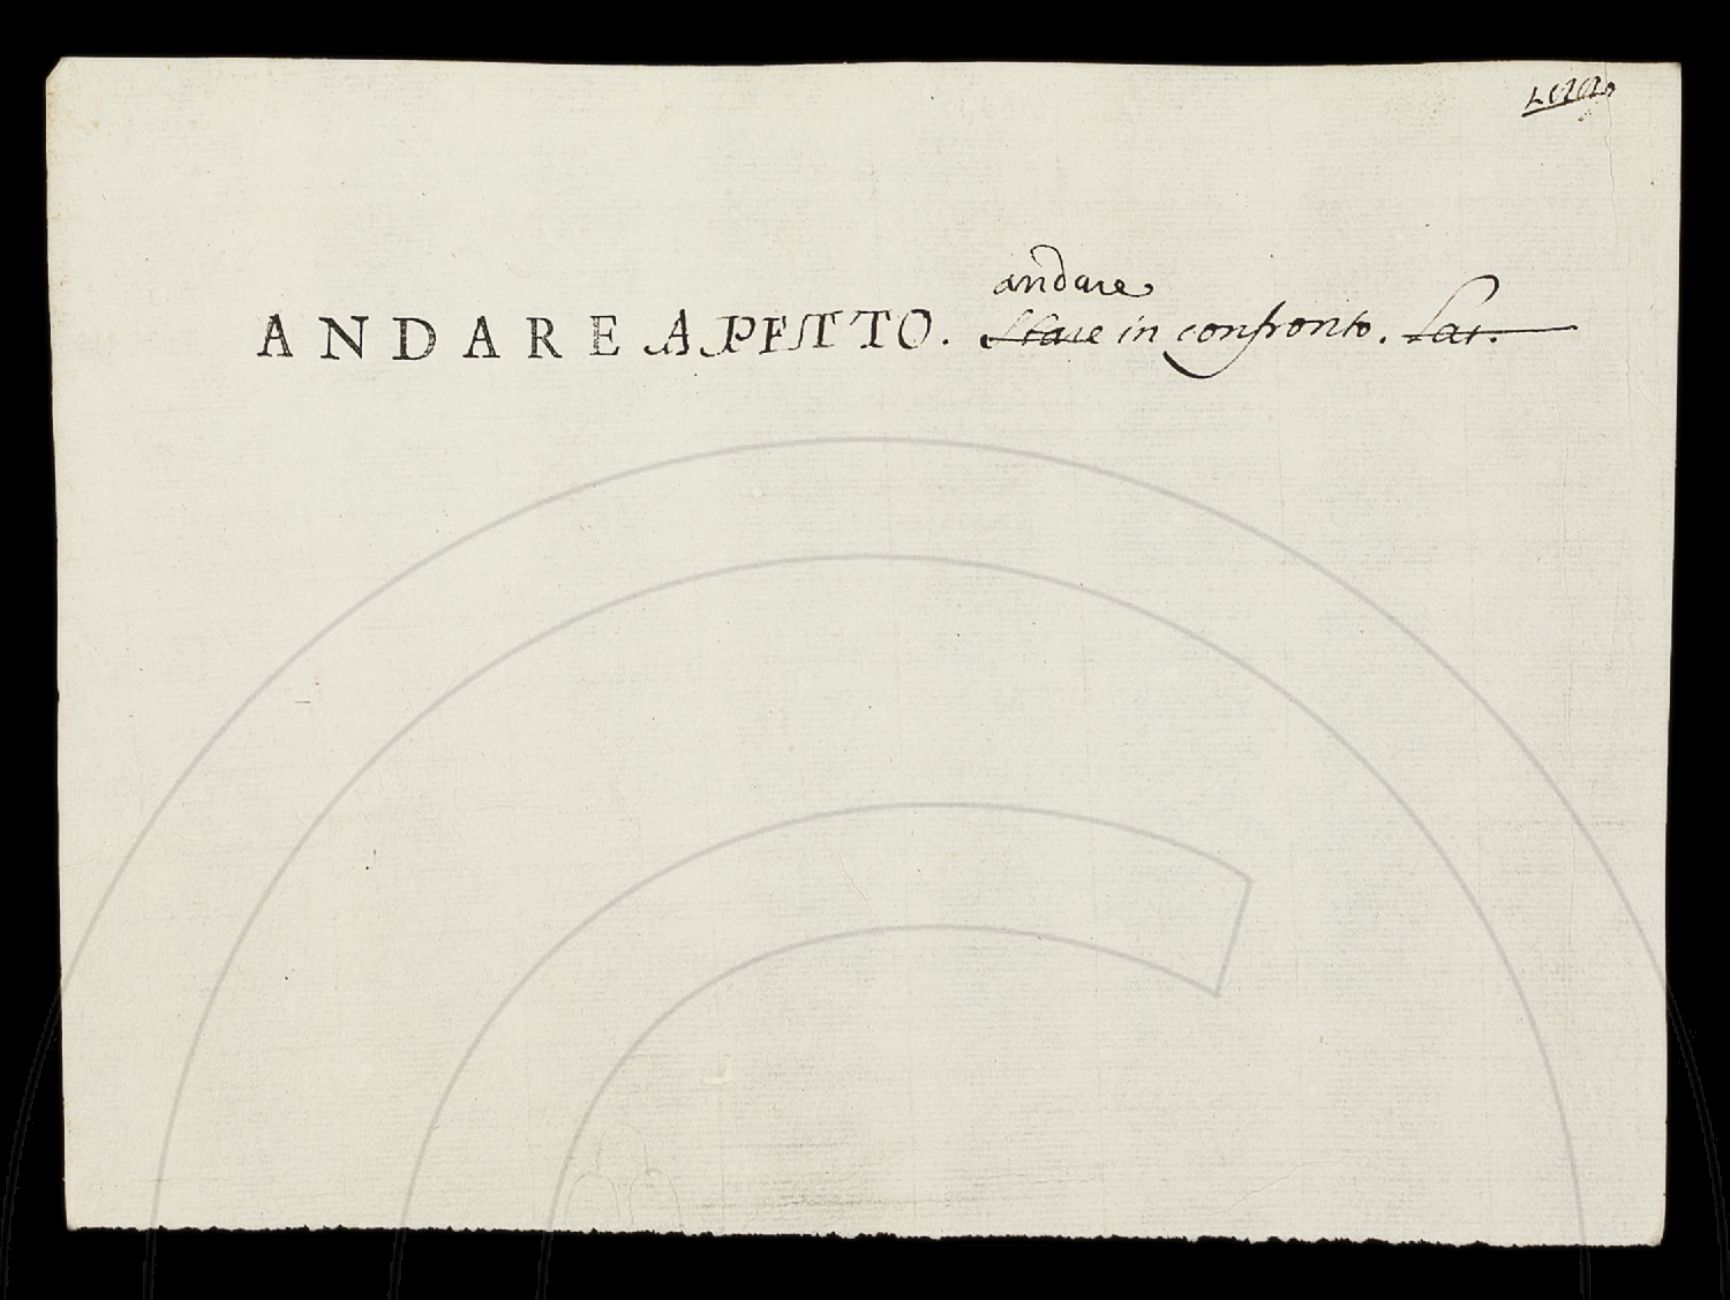 andare
ANDARE A PETTO. Stare in confronto. Lat.